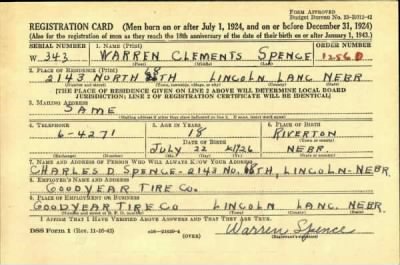 FORM APPROVED
REGISTRATION CARD (Men born on or after July 1, 1924, and on or before December 31, 1924)
(Also for the registration of men as they reach the 18th anniversary of the date of their birth on or after January 1, 1943.)
SERIAL NUMBER 1. NAME (Print) ORDER NUMBER
W. 343 WARREN CLEMENTS SPENCE
2. PLACE OF RESIDENCE (Print)
2143 NORTH LINCOLN LANC NEBR
[THE PLACE OF RESIDENCE GIVEN ON LINE 2 ABOVE WILL DETERMINE LOCAL BOARD
JURISDICTION; LINE 2 OF REGISTRATION CERTIFICATE WILL BE IDENTICAL]
3. MAILING ADDRESS
SAME
4. TELEPHONE 5. AGE IN YEARS 6. PLACE OF BIRTH
6-4271 18 RIVERTON
DATE OF BIRTH
JULY 22 NEBR.
7. NAME AND ADDRESS OF PERSON WHO WILL ALWAYS KNOW YOUR ADDRESS
CHARLES D SPENCE-2143 NO. LINCOLN-NEBR
8. EMPLOYER'S NAME AND ADDRESS
GOODYEAR TIRE CO.
9. PLACE OF EMPLOYMENT OR BUSINESS
GOODYEAR TIRE CO LINCOLN LANC. NEBR.
I AFFIRM THAT I HAVE VERIFIED ABOVE ANSWERS AND THAT THEY ARE TRUE.
DSS Form 1 (OVER) Warren Spence